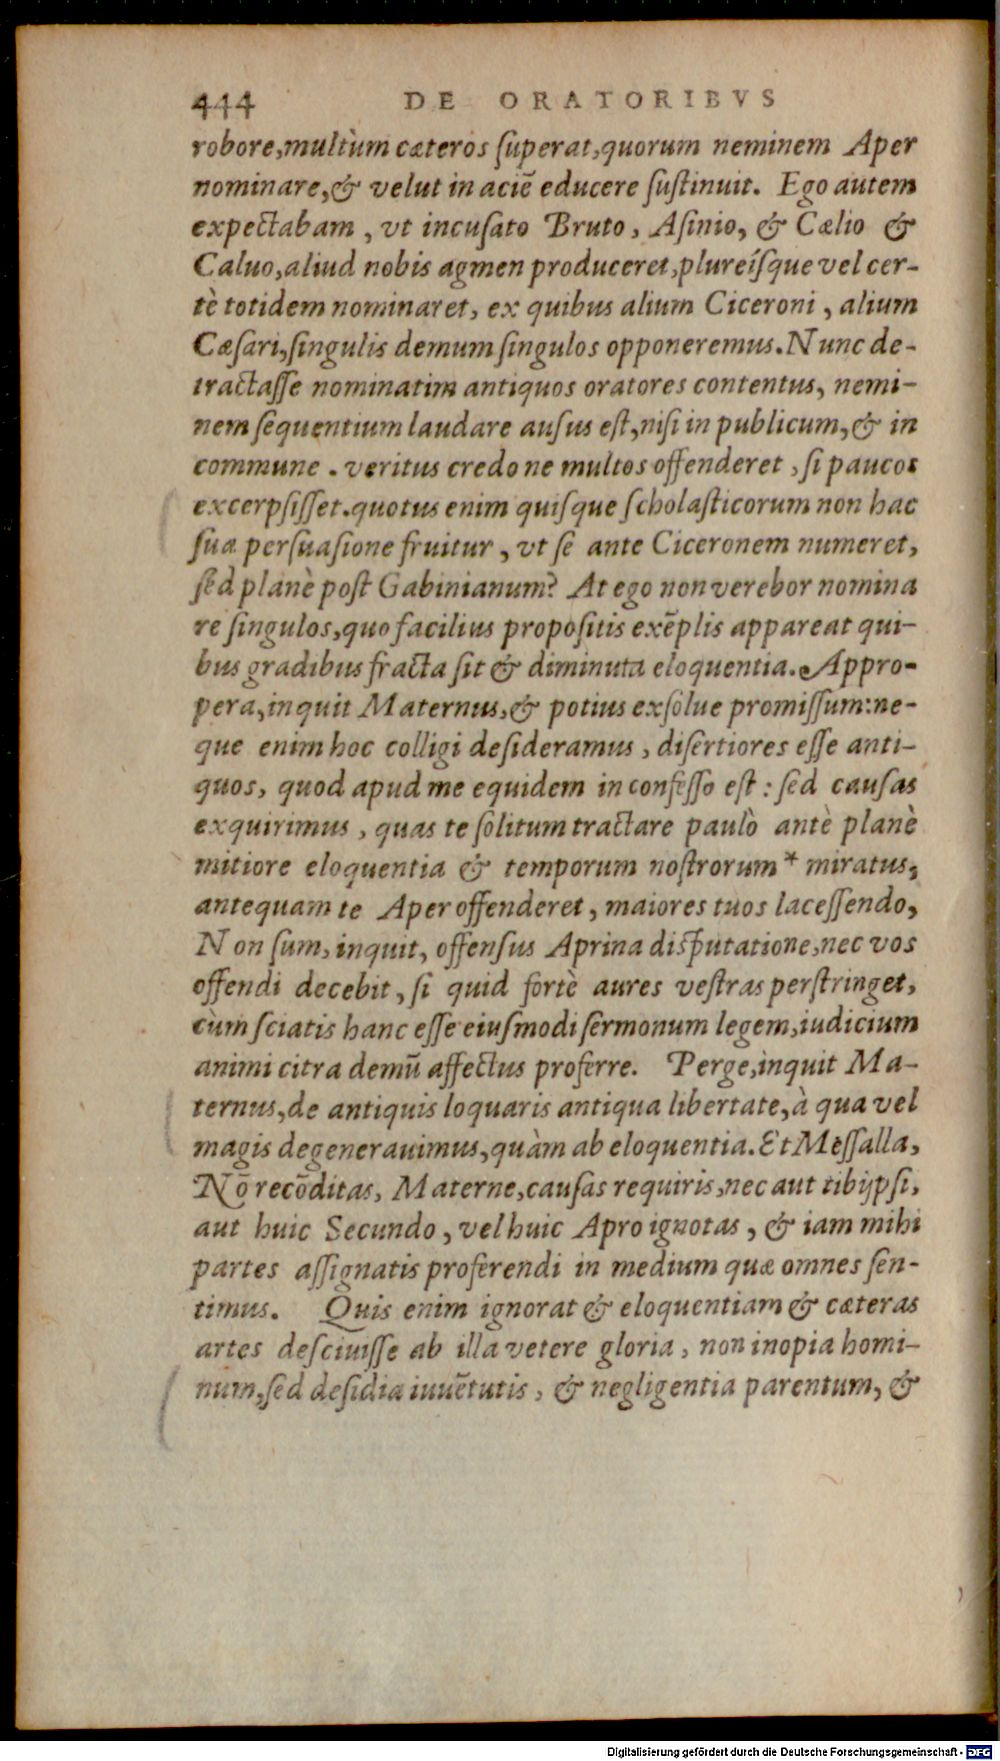 444 DE ORATORIBVS
robore,multùm cæteros ſuperat,quorum neminem Aper
nominare,& velut in aciē educere ſuſtinuit. Ego autem
expectabam , vt incuſato Bruto, Aſinio, & Cælio &
Caluo,aliud nobis agmen produceret,plureíſque vel cer-
tè totidem nominaret, ex quibus alium Ciceroni , alium
Cæſari,ſingulis demum ſingulos opponeremus.Nunc de-
tractaſſe nominatim antiquos oratores contentus, nemi-
nem ſequentium laudare auſus eſt,niſi in publicum,& in
commune . veritus credo ne multos offenderet , ſi paucos
excerpſiſſet.quotus enim quiſque ſcholaſticorum non hac
ſua perſuaſione fruitur , vt ſe ante Ciceronem numeret,
ſed planè poſt Gabinianum? At ego non verebor nomina
re ſingulos,quo facilius propoſitis exēplis appareat qui-
bus gradibus fracta ſit & diminuta eloquentia. Appro-
pera,inquit Maternus,& potius exſolue promiſſum:ne-
que enim hoc colligi deſideramus , diſertiores eſſe anti-
quos, quod apud me equidem in confeſſo eſt : ſed cauſas
exquirimus , quas te ſolitum tractare paulò antè planè
mitiore eloquentia & temporum noſtrorum * miratus,
antequam te Aper offenderet , maiores tuos laceſſendo,
Non ſum, inquit, offenſus Aprina diſputatione,nec vos
offendi decebit , ſi quid fortè aures veſtras perſtringet,
cùm ſciatis hanc eſſe eiuſmodi ſermonum legem,iudicium
animi citra demū affectus proferre. Perge,inquit Ma-
ternus,de antiquis loquaris antiqua libertate,à qua vel
magis degenerauimus,quàm ab eloquentia. Et Meſſalla,
Nō recōditas, Materne,cauſas requiris,nec aut tibijpſi,
aut huic Secundo , vel huic Apro ignotas , & iam mihi
partes aſſignatis proferendi in medium quæ omnes ſen-
timus. Quis enim ignorat & eloquentiam & cæteras
artes deſciuiſſe ab illa vetere gloria , non inopia homi-
num,ſed deſidia iuuētutis , & negligentia parentum, &
Digitalisierung gefördert durch die Deutsche Forschungsgemeinschaft - DFG